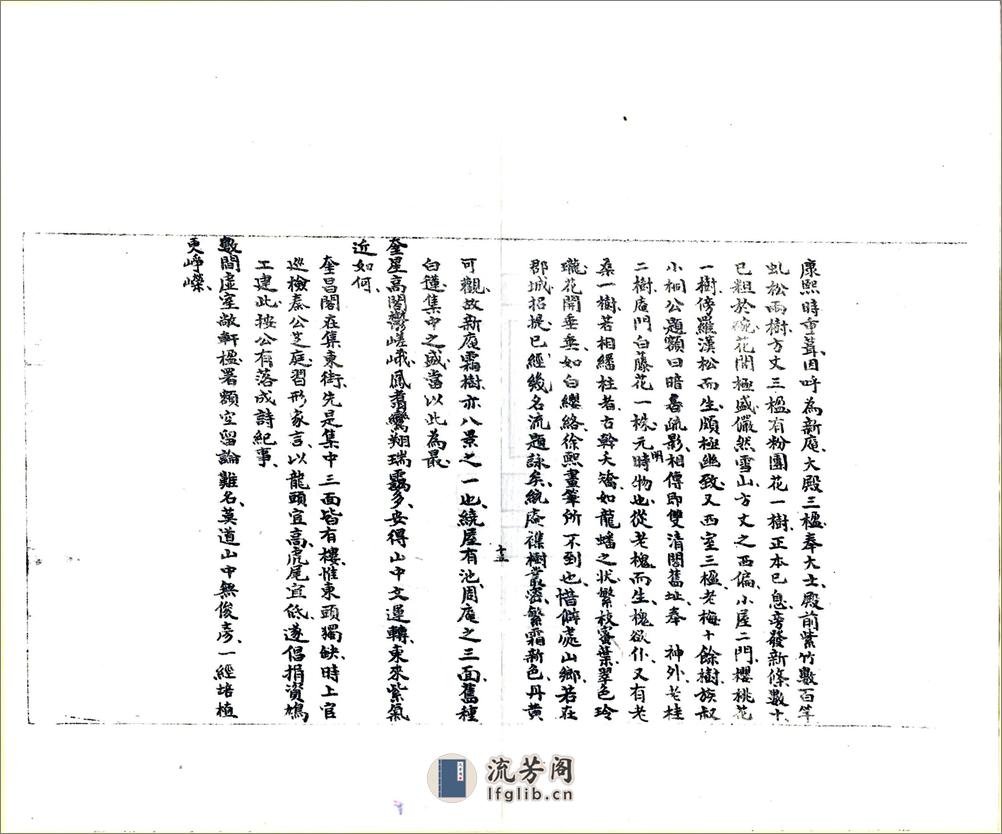 康熙時重葺因呼為新庵大殿三楹奉大士殿前紫竹數百竿
虬松兩樹方丈三楹有粉團花一樹正本已息旁發新條數十
已粗於碗花開極盛儼然雪山方丈之西偏小屋二門櫻桃花
一樹傍羅漢松而生頗極幽致又西室三楹老梅十餘樹族叔
小桐公題額曰暗香疏影相傳即雙清閣舊址奉 神外老桂
二樹庵門白藤花一株元明時物也從老槐而生槐欲仆又有老
桑一樹若相繙柱者古幹夭矯如龍蟠之狀繁枝蜜葉翠色玲
瓏花開垂垂如白纓絡徐熙畫筆所不到也惜僻處山鄉若在
郡城招提已經幾名流題詠矣繞庵襍樹叢密繁霜新色丹黃
十五
可觀故新庵霜樹亦八景之一也繞屋有池周庵之三面舊種
白蓮集中之盛當以此為最
奎星高閣鬱嵯峨鳳翥鸞翔瑞靄多安得山中文運轉東來紫氣
近如何
奎昌閣在集東街先是集中三面皆有樓惟東頭獨缺時上官
巡檢秦公芝庭習形家言以龍頭宜高虎尾宜低遂倡捐資鳩
工建此按公有落成詩紀事
數間虛室敞軒楹署額空留論難名莫道山中無俊彥一經培植
更崢嶸
流芳阁
lfglib.cn